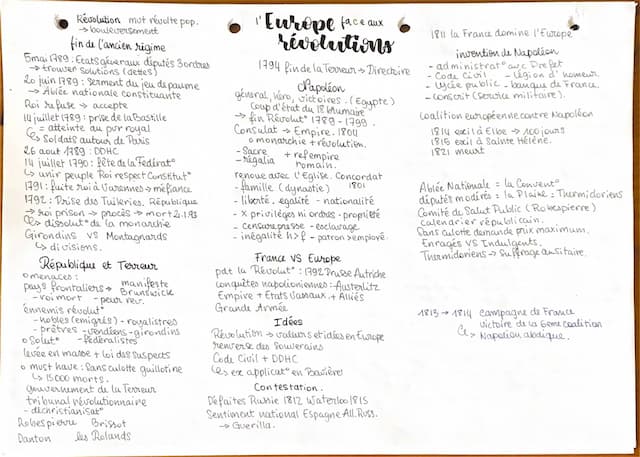 Révolution mot révolte pop.
→ bouleversement
fin de l'ancien régime
5 mai 1789 : Etats généraux députés 3 ordres
→ trouver solutions (dettes)
20 juin 1789 : serment du jeu de paume
→ Ablée nationale constituante
Roi refuse → accepte
14 juillet 1789 : prise de la Bastille
= atteinte au pvr royal
↳ Soldats autour de Paris
26 aout 1789 : DDHC
14 juillet 1790 : fête de la Fédérat°
↳ unir peuple Roi respect Constitut°
1791 : fuite roi à Varennes → méfiance
1792 : Prise des Tuileries. République
→ roi prison → procès → mort 21.1.93
↳ dissolut° de la monarchie
Girondins VS Montagnards
↳ divisions.
République et Terreur
o menaces :
pays frontaliers → manifeste Brunswick
- roi mort - peur rev.
énnemis révolut°
- nobles (emigrés) - royalistres
- prêtres - vendéens - girondins
- fédéralistes
o Solut°
levée en masse + loi des suspects
o must have : Sans culotte guillotine
↳ 15 000 morts.
gouvernement de la Terreur
tribunal révolutionnaire
- déchristianisat°
Robespierre Brissot
Danton les Rolands
l'Europe face aux
révolutions
1794 fin de la Terreur → Directoire
Napoléon
général, héro, victoires. (Egypte)
coup d'état du 18 brumaire
→ fin Révolut° 1789 - 1799.
Consulat → Empire. 1804
o monarchie + révolution.
- sacre + ref empire
- régalia romain.
renoue avec l'Eglise. Concordat
1801
- famille (dynastie)
- liberté. egalité - nationalité
- x privilèges ni ordres - propriété
- censure presse - esclavage
- inégalité h > f - patron > employé.
France VS Europe
pdt la Révolut° : 1792 Prusse Autriche
conquêtes napoliennes : Austerlitz
Empire + Etats Vassaux + Alliés
Grande Armée
Idées
Révolution → valeurs et idées en Europe
renverse des Souverains
Code Civil + DDHC
↳ ex applicat° en Bavière
Contestation.
Défaites Russie 1812 Waterloo 1815
Sentiment national Espagne All. Russ.
→ Guerilla.
1811 la France domine l'Europe
invention de Napoléon
- administrat° avec Prefet
- Code Civil - légion d'honneur.
- lycée public - banque de France.
- conscrit (service militaire).
coalition européenne contre Napoléon
1814 exil à Elbe → 100 jours
1815 exil à Sainte Hélène.
1821 meurt
Ablée Nationale = la Convent°
députés modérés = la Plaine = Thermidoriens
Comité de Salut Public (Robespierre)
calendrier républicain.
Sans culotte demande prix maximum.
Enragés VS Indulgents.
Thermidoriens → suffrage censitaire.
1813 → 1814 campagne de France
victoire de la 6eme coalition
↳ Napoléon abdique.